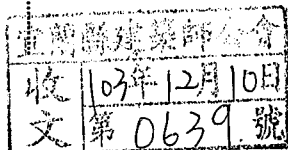 宜蘭縣建築師公會
收 103年12月10日
文 第 0639 號